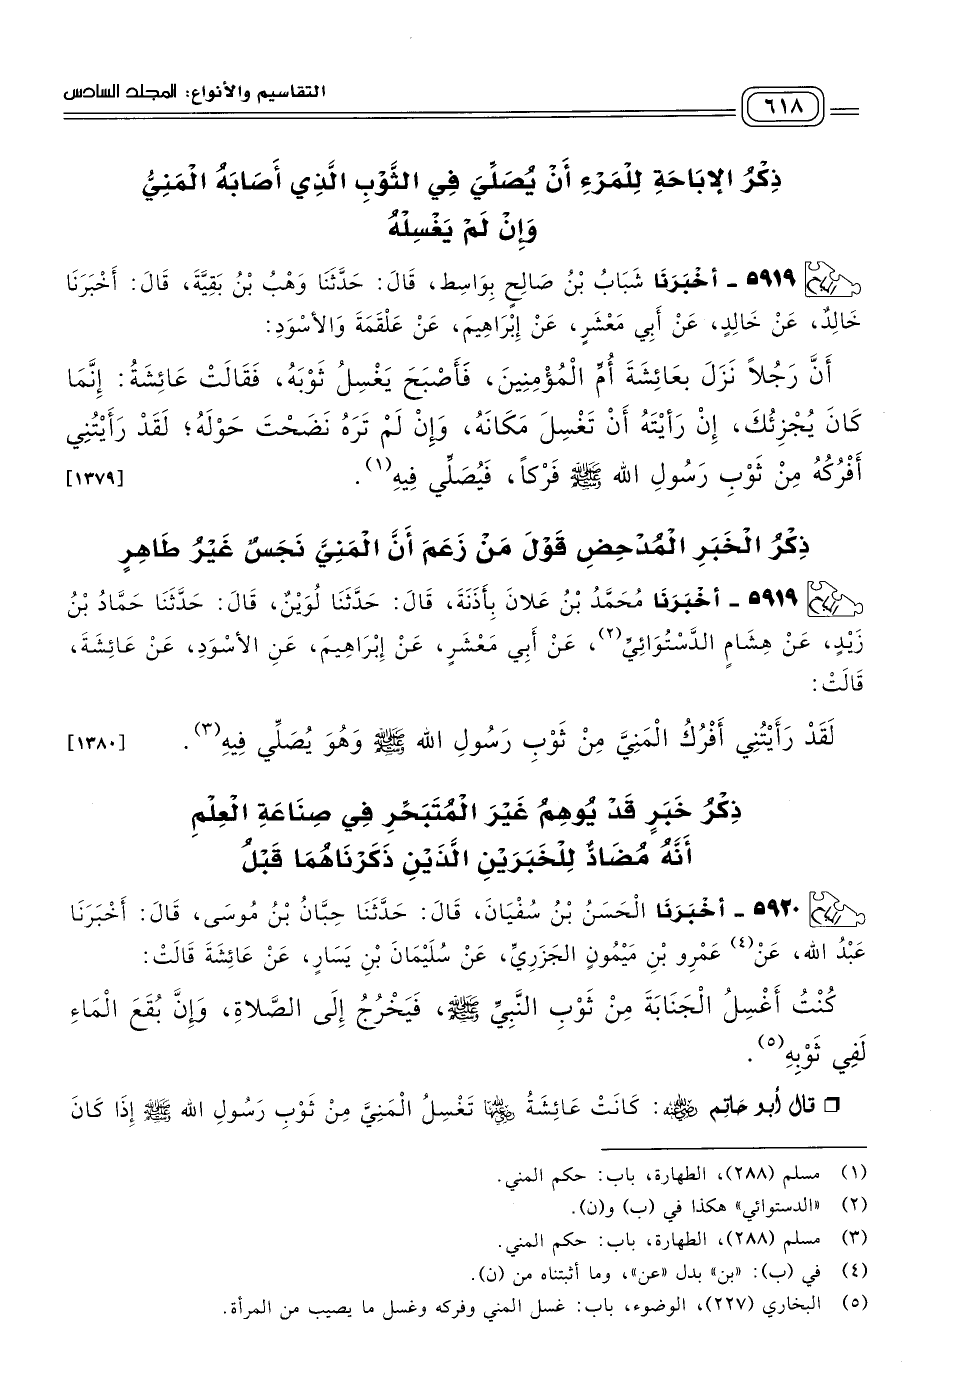 التقاسيم والأنواع: المجلد السادس
٦١٨
ذِكْرُ الإبَاحَةِ لِلْمَرْءِ أَنْ يُصَلِّيَ فِي الثَّوْبِ الَّذِي أَصَابَهُ الْمَنِيُّ
وَإِنْ لَمْ يَغْسِلْهُ
٥٩١٩ ـ أخْبَرَنَا شَبَابُ بْنُ صَالِحٍ بِوَاسِط، قَالَ: حَدَّثَنَا وَهْبُ بْنُ بَقِيَّةَ، قَالَ: أَخْبَرَنَا
خَالِدٌ، عَنْ خَالِدٍ، عَنْ أَبِي مَعْشَرٍ، عَنْ إبْرَاهِيمَ، عَنْ عَلْقَمَةَ وَالأسْوَدِ:
أَنَّ رَجُلاً نَزَلَ بِعَائِشَةَ أُمِّ الْمُؤْمِنِينَ، فَأَصْبَحَ يَغْسِلُ ثَوْبَهُ، فَقَالَتْ عَائِشَةُ: إِنَّمَا
كَانَ يُجْزِئُكَ، إِنْ رَأَيْتَهُ أَنْ تَغْسِلَ مَكَانَهُ، وَإِنْ لَمْ تَرَهُ نَضَحْتَ حَوْلَهُ؛ لَقَدْ رَأَيْتُنِي
أَفْرُكُهُ مِنْ ثَوْبِ رَسُولِ الله ﷺ فَرْكاً، فَيُصَلِّي فِيهِ(١). [١٣٧٩]
ذِكْرُ الْخَبَرِ الْمُدْحِضِ قَوْلَ مَنْ زَعَمَ أَنَّ الْمَنِيَّ نَجَسٌ غَيْرُ طَاهِرٍ
٥٩١٩ ـ أخْبَرَنَا مُحَمَّدُ بْنُ عَلانَ بِأَذَنَةَ، قَالَ: حَدَّثَنَا لُوَيْنٌ، قَالَ: حَدَّثَنَا حَمَّادُ بْنُ
زَيْدٍ، عَنْ هِشَامٍ الدَّسْتُوَائِيِّ(٢)، عَنْ أَبِي مَعْشَرٍ، عَنْ إبْرَاهِيمَ، عَنِ الأسْوَدِ، عَنْ عَائِشَةَ،
قَالَتْ:
لَقَدْ رَأَيْتُنِي أَفْرُكُ الْمَنِيَّ مِنْ ثَوْبِ رَسُولِ الله ﷺ وَهُوَ يُصَلِّي فِيهِ(٣). [١٣٨٠]
ذِكْرُ خَبَرٍ قَدْ يُوهِمُ غَيْرَ الْمُتَبَحِّرِ فِي صِنَاعَةِ الْعِلْمِ
أَنَّهُ مُضَادٌّ لِلْخَبَرَيْنِ الَّذَيْنِ ذَكَرْنَاهُمَا قَبْلُ
٥٩٢٠ ـ أخْبَرَنَا الْحَسَنُ بْنُ سُفْيَانَ، قَالَ: حَدَّثَنَا حِبَّانُ بْنُ مُوسَى، قَالَ: أَخْبَرَنَا
عَبْدُ الله، عَنْ(٤) عَمْرِو بْنِ مَيْمُونٍ الجَزَرِيِّ، عَنْ سُلَيْمَانَ بْنِ يَسَارٍ، عَنْ عَائِشَةَ قَالَتْ:
كُنْتُ أَغْسِلُ الْجَنَابَةَ مِنْ ثَوْبِ النَّبِيِّ ﷺ، فَيَخْرُجُ إِلَى الصَّلاةِ، وَإِنَّ بُقَعَ الْمَاءِ
لَفِي ثَوْبِهِ(٥).
❑ قال أبو حاتم رضي الله عنه: كَانَتْ عَائِشَةُ رضي الله عنها تَغْسِلُ الْمَنِيَّ مِنْ ثَوْبِ رَسُولِ الله ﷺ إِذَا كَانَ
(١) مسلم (٢٨٨)، الطهارة، باب: حكم المني.
(٢) «الدستوائي» هكذا في (ب) و(ن).
(٣) مسلم (٢٨٨)، الطهارة، باب: حكم المني.
(٤) في (ب): «بن» بدل «عن»، وما أثبتناه من (ن).
(٥) البخاري (٢٢٧)، الوضوء، باب: غسل المني وفركه وغسل ما يصيب من المرأة.